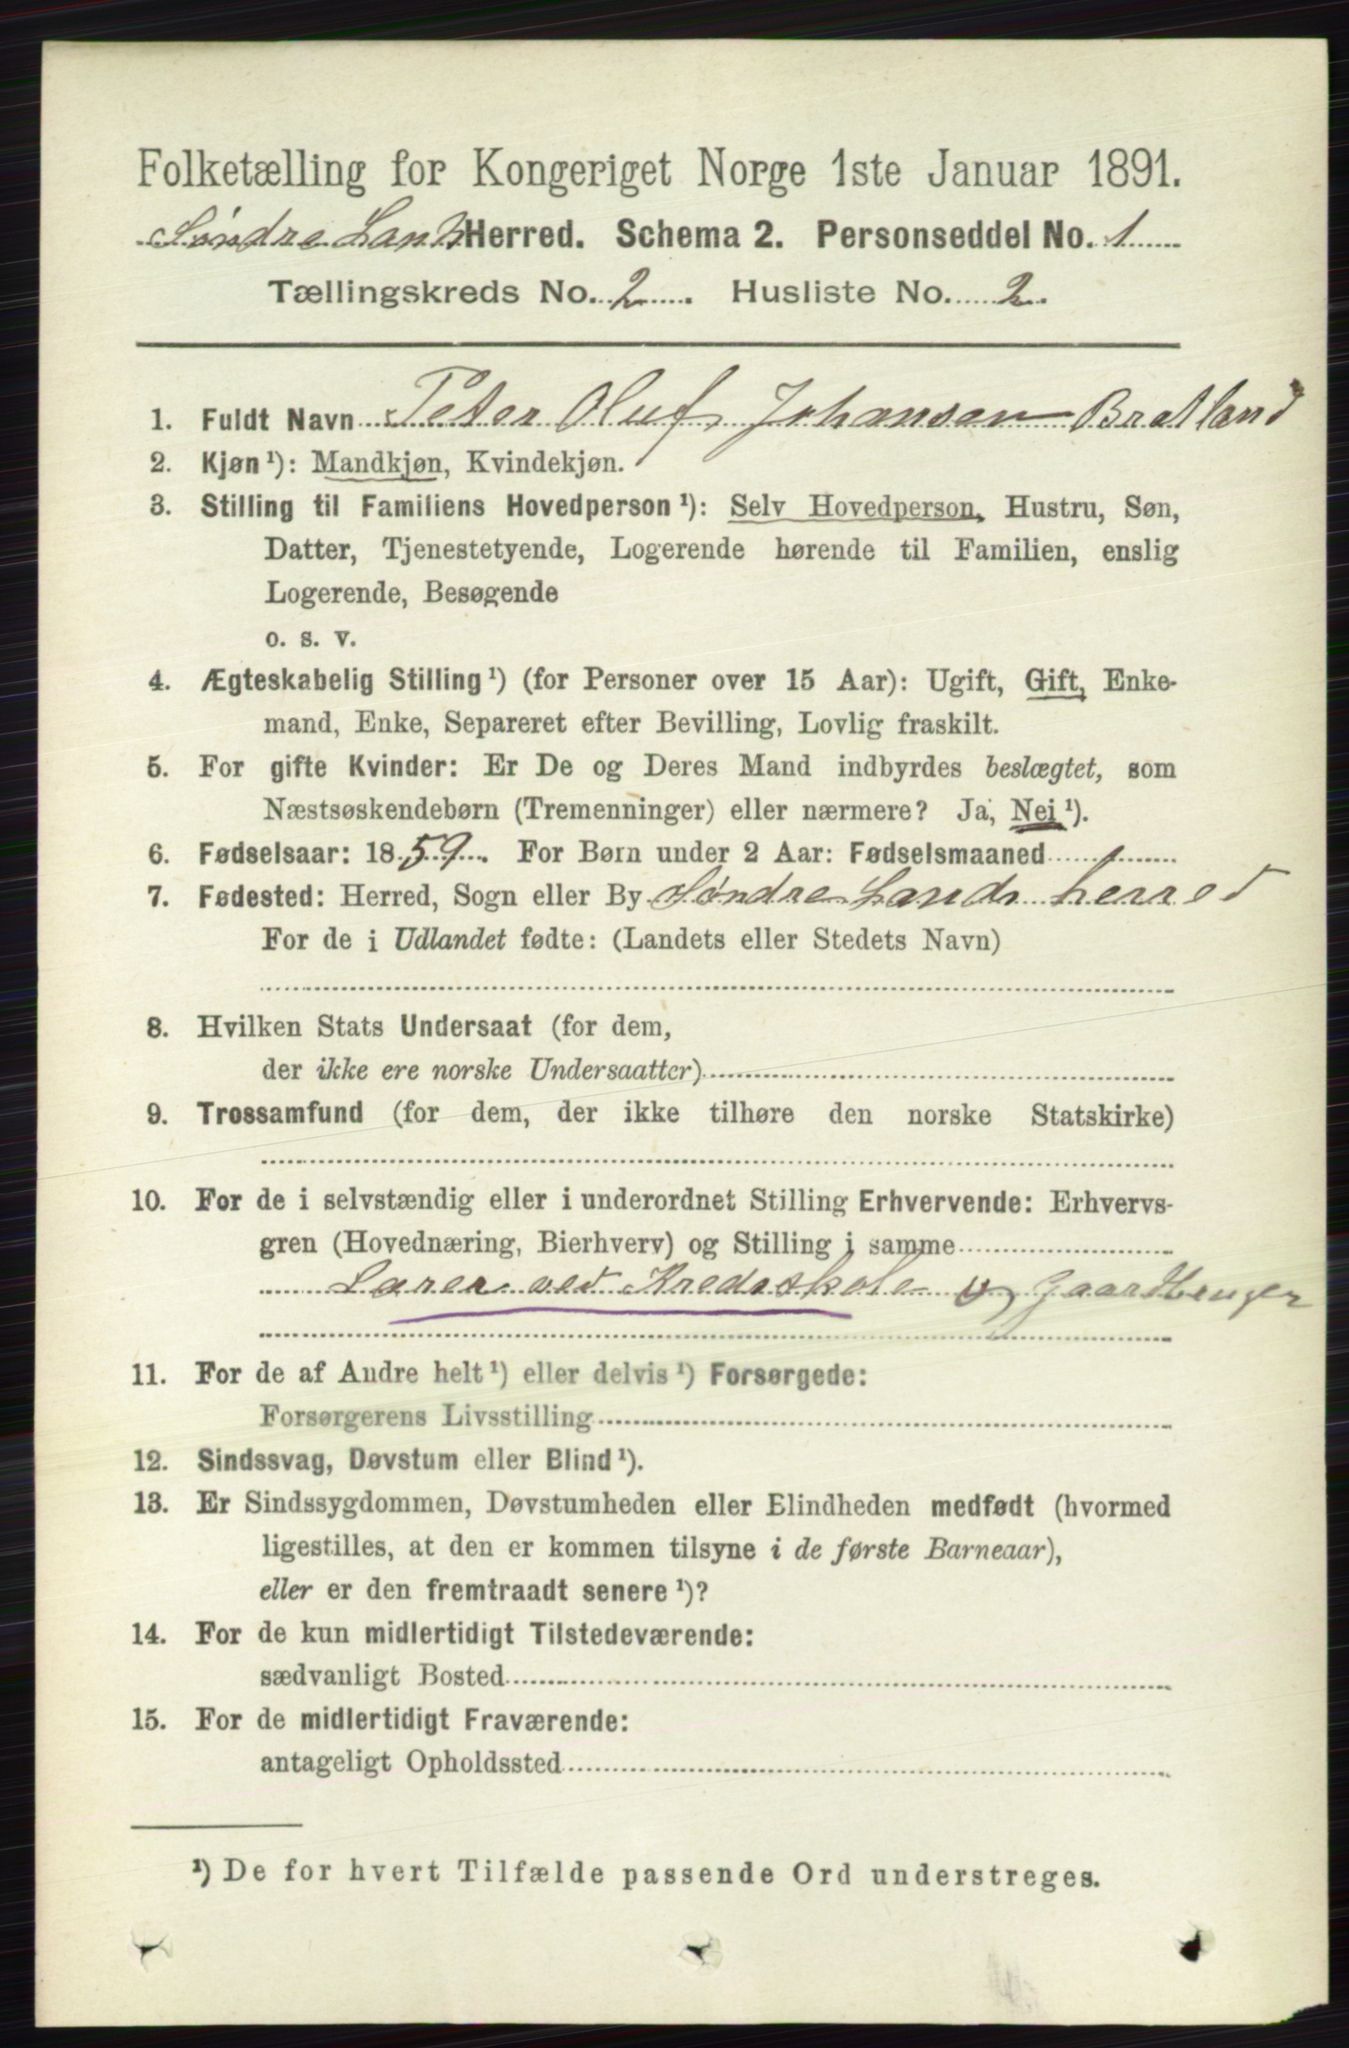 Folketælling for Kongeriget Norge 1ste Januar 1891.
Søndre Lands Herred. Schema 2. Personseddel No. 1
Tællingskreds No. 2. Husliste No. 2.
1. Fuldt Navn Peter Oluf Johansen Bratland
2. Kjøn ¹): Mandkjøn, Kvindekjøn.
3. Stilling til Familiens Hovedperson ¹): Selv Hovedperson, Hustru, Søn,
Datter, Tjenestetyende, Logerende hørende til Familien, enslig
Logerende, Besøgende
o. s. v.
4. Ægteskabelig Stilling ¹) (for Personer over 15 Aar): Ugift, Gift, Enke-
mand, Enke, Separeret efter Bevilling, Lovlig fraskilt.
5. For gifte Kvinder: Er De og Deres Mand indbyrdes beslægtet, som
Næstsøskendebørn (Tremenninger) eller nærmere? Ja, Nei ¹).
6. Fødselsaar: 1859. For Børn under 2 Aar: Fødselsmaaned
7. Fødested: Herred, Sogn eller By Søndre Lands herred
For de i Udlandet fødte: (Landets eller Stedets Navn)
8. Hvilken Stats Undersaat (for dem,
der ikke ere norske Undersaatter)
9. Trossamfund (for dem, der ikke tilhøre den norske Statskirke)
10. For de i selvstændig eller i underordnet Stilling Erhvervende: Erhvervs-
gren (Hovednæring, Bierhverv) og Stilling i samme
Lærer ved Kredsskole og Gaardbruger
11. For de af Andre helt ¹) eller delvis ¹) Forsørgede:
Forsørgerens Livsstilling
12. Sindssvag, Døvstum eller Blind ¹).
13. Er Sindssygdommen, Døvstumheden eller Blindheden medfødt (hvormed
ligestilles, at den er kommen tilsyne i de første Barneaar),
eller er den fremtraadt senere ¹)?
14. For de kun midlertidigt Tilstedeværende:
sædvanligt Bosted
15. For de midlertidigt Fraværende:
antageligt Opholdssted
¹) De for hvert Tilfælde passende Ord understreges.